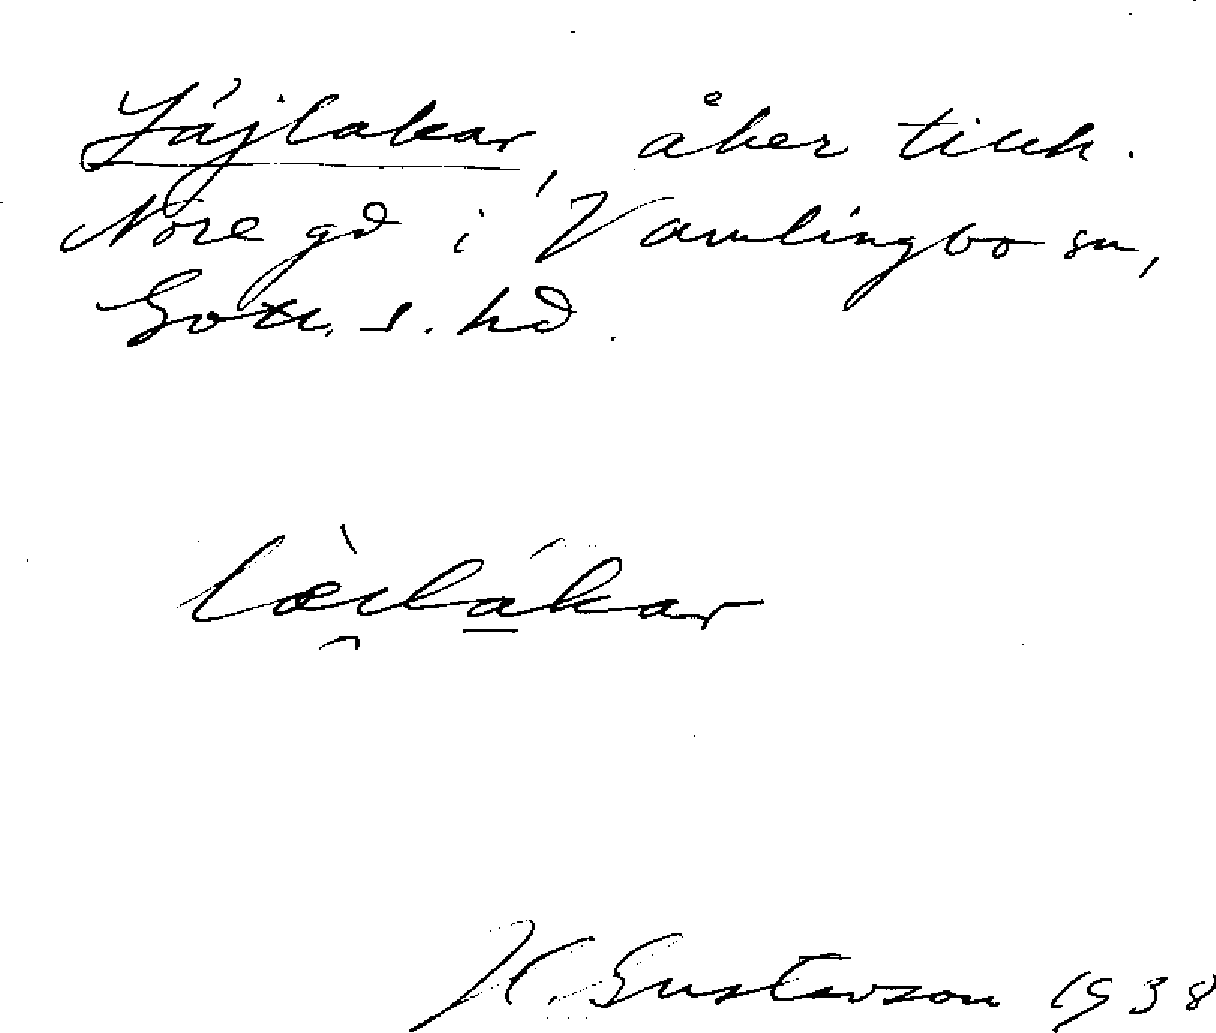 Lájlakar, åker tillh.
Nore gd i Vamlingbo sn,
Gotl. s. hd.
læ̀i̯lákar
H. Gustavson 1938